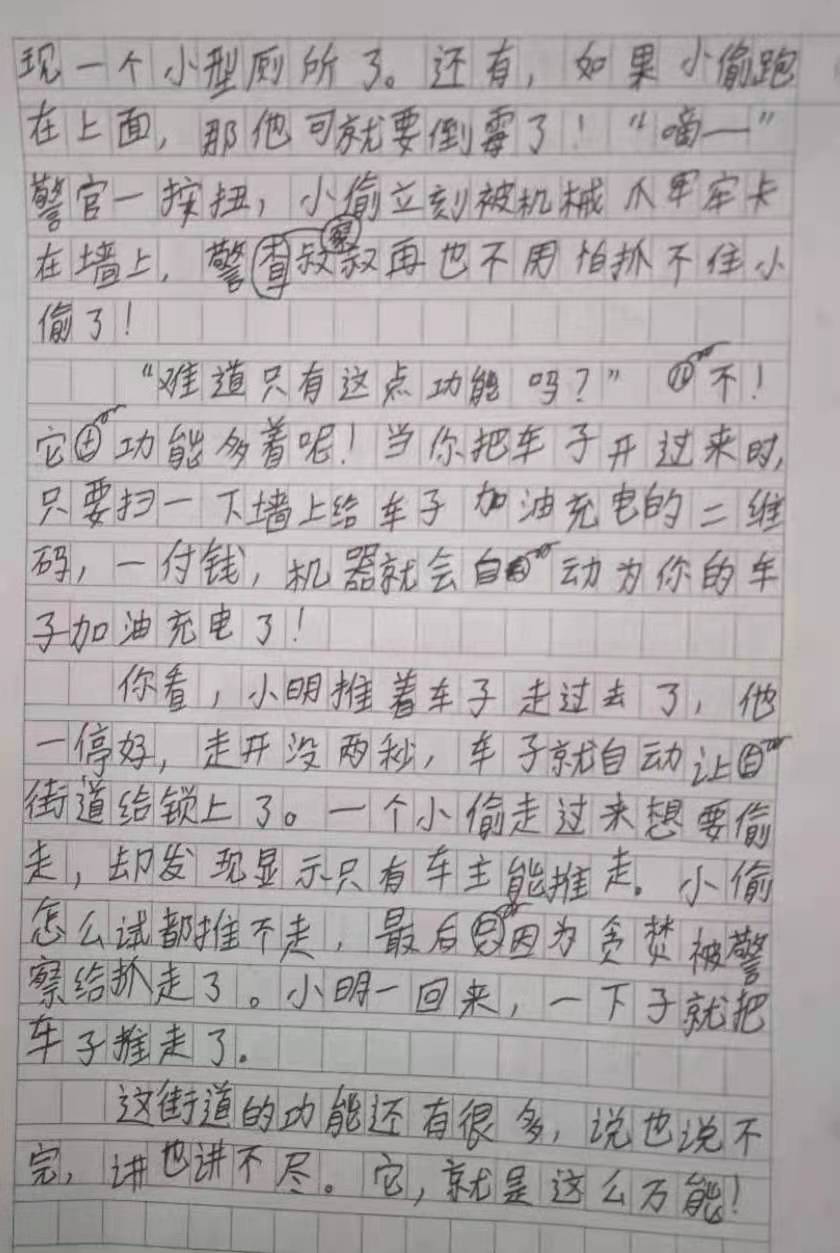 现一个小型厕所了。还有，如果小偷跑
在上面，那他可就要倒霉了！“嘀一”
警官一按扭，小偷立刻被机械爪牢牢卡
在墙上，警察叔叔再也不用怕抓不住小
偷了！
“难道只有这点功能吗？”不！
它功能多着呢！当你把车子开过来时，
只要扫一下墙上给车子加油充电的二维
码，一付钱，机器就会自动为你的车
子加油充电了！
你看，小明推着车子走过去了，他
一停好，走开没两秒，车子就自动让
街道给锁上了。一个小偷走过来想要偷
走，却发现显示只有车主能推走。小偷
怎么试都推不走，最后因为贪婪被警
察给抓走了。小明一回来，一下子就把
车子推走了。
这街道的功能还有很多，说也说不
完，讲也讲不尽。它，就是这么万能！